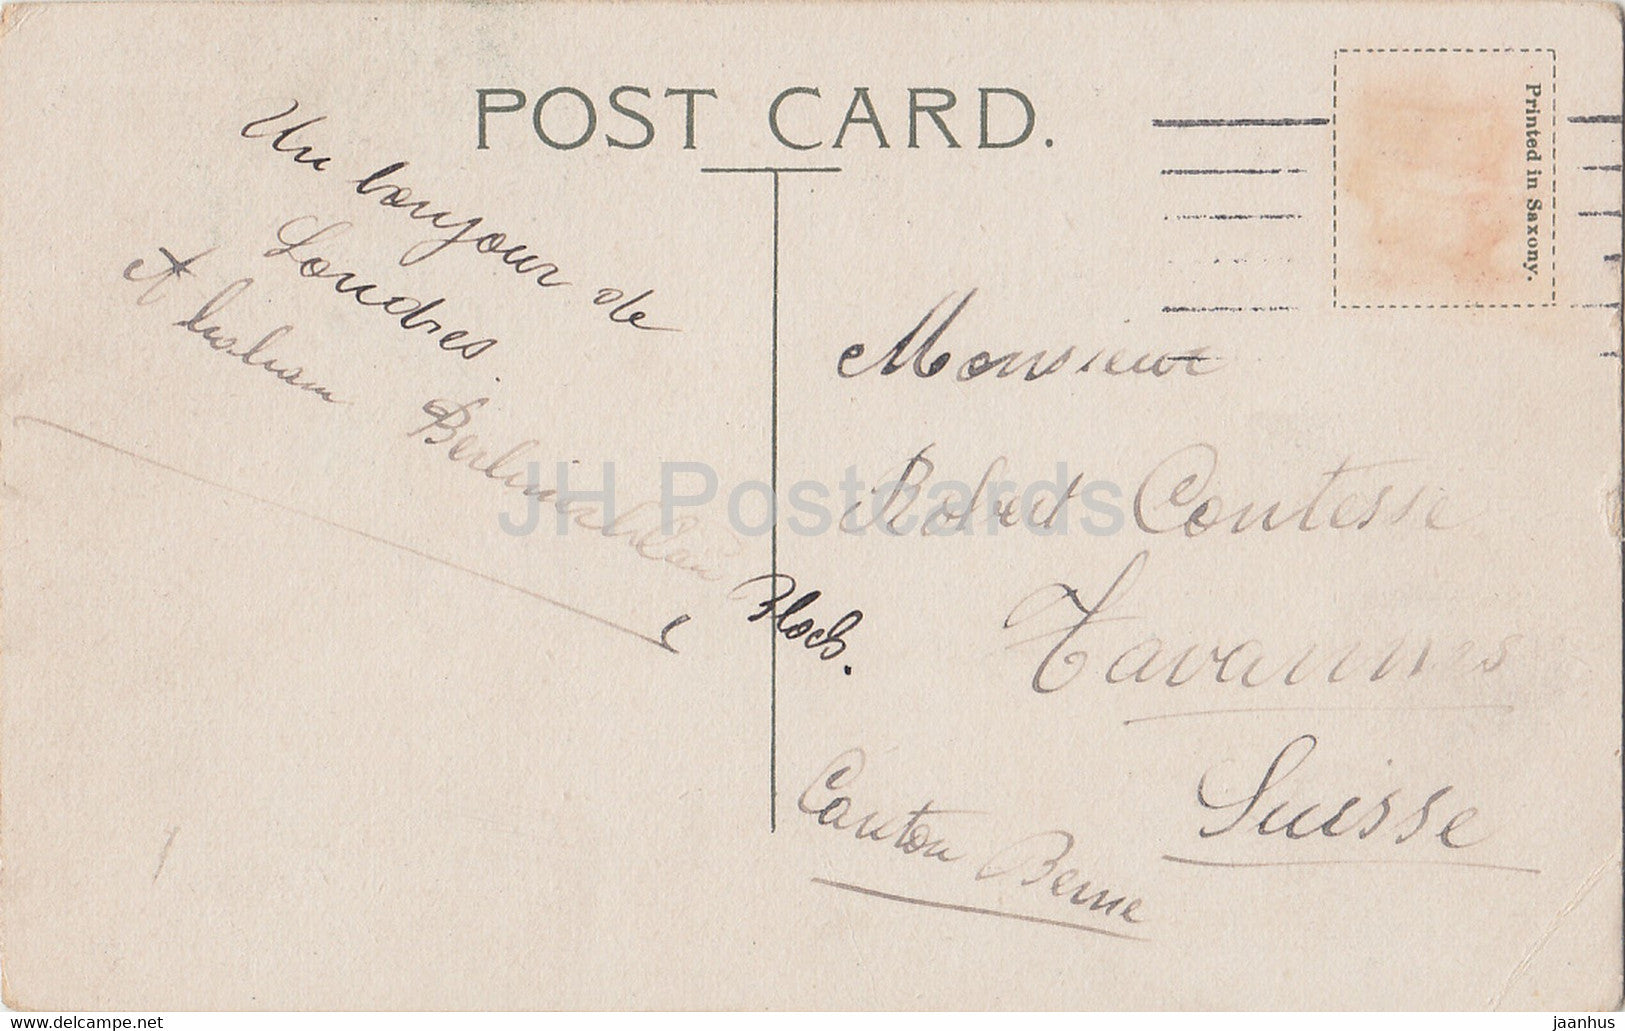 POST CARD.
Printed in Saxony.
Un bonjour de
Londres.
A
Bloch.
Monsieur
Robert Contesse
Tavannes
Suisse
Canton Berne
JH Postcards
hip-postcard.com
jaanhus